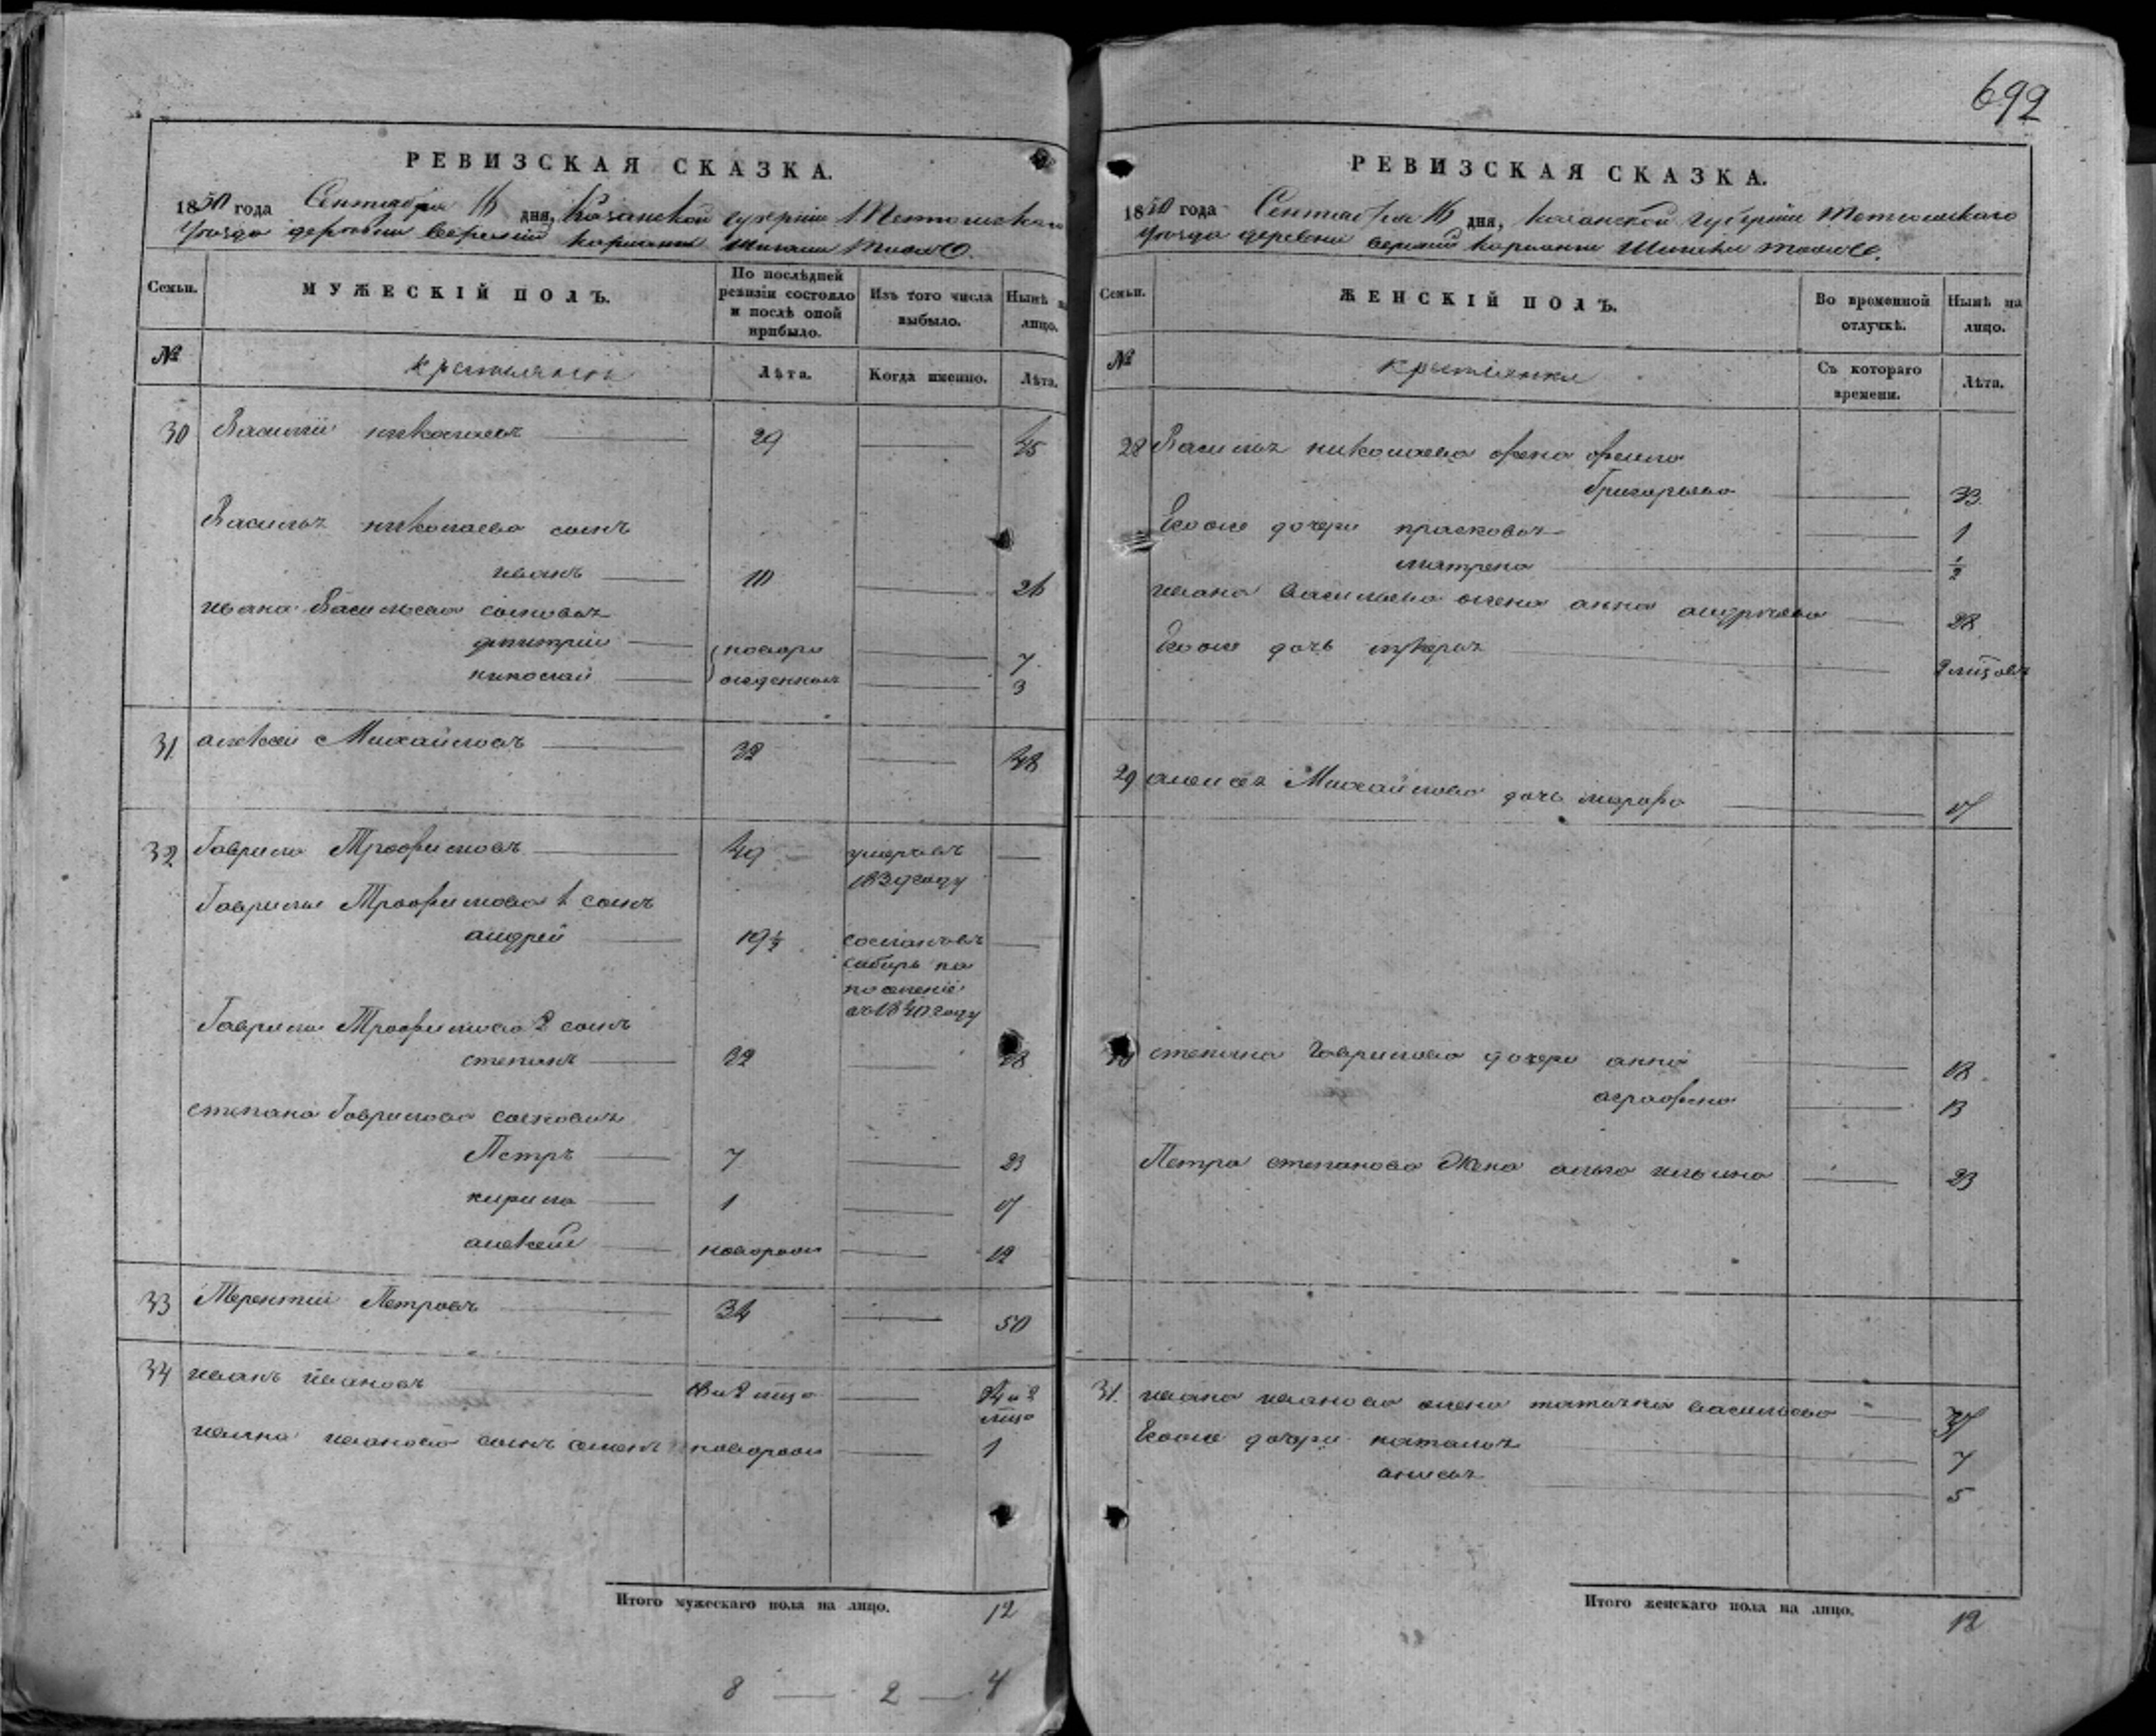 692
РЕВИЗСКАЯ СКАЗКА.
1850 года Сентября 16 дня, Казанской губернии Тетюшскаго
уезда деревни верхний
Семьи.
МУЖЕСКІЙ ПОЛЪ.
По послѣдней ревизіи состояло и послѣ оной прибыло.
Изъ того числа выбыло.
Нынѣ на лицо.
№
крестьянъ
Лѣта.
Когда именно.
Лѣта.
30 Василий николаевъ 29 45
Василья николаева сынъ
иванъ 10 26
ивана Васильева сыновья
дмитрий новоро 7
николай жденныя 3
31 алексей Михайловъ 32 48
32 Гаврила Трофимовъ 49 умеръ въ
1839 году
Гаврилы Трофимова 1 сынъ
андрей 19½ сосланъ въ
сибирь на
поселение
въ 1840 году
Гаврилы Трофимова 2 сынъ
степанъ 32 48
степана Гаврилова сыновья
Петръ 7 23
кирила 1 17
алексей новорож 12
33 Терентий Петровъ 34 50
34 иванъ ивановъ 18 и 2 лица 34 и 2
лица
ивана иванова сынъ семенъ новорож 1
Итого мужескаго пола на лицо. 12
8 — 2 — 4
РЕВИЗСКАЯ СКАЗКА.
1850 года Сентября 16 дня, казанской губернии Тетюшскаго
уезда деревни верхний
Семьи.
ЖЕНСКІЙ ПОЛЪ.
Во временной отлучкѣ.
Нынѣ на лицо.
№
крестьянки
Съ котораго времени.
Лѣта.
28 Василья николаева жена
Григорьева 33
Егоже дочери прасковья 1
матрена ½
ивана васильева жена анна андреева 28
Егоже дочь лукерья
29 алексея Михайлова дочь марфа 17
30 степана Гаврилова дочери анна 18
аграфена 13
Петра степанова жена ильина 23
31. ивана иванова жена татьяна васильева 37
Егоже дочери наталья 7
анисья 5
Итого женскаго пола на лицо. 12